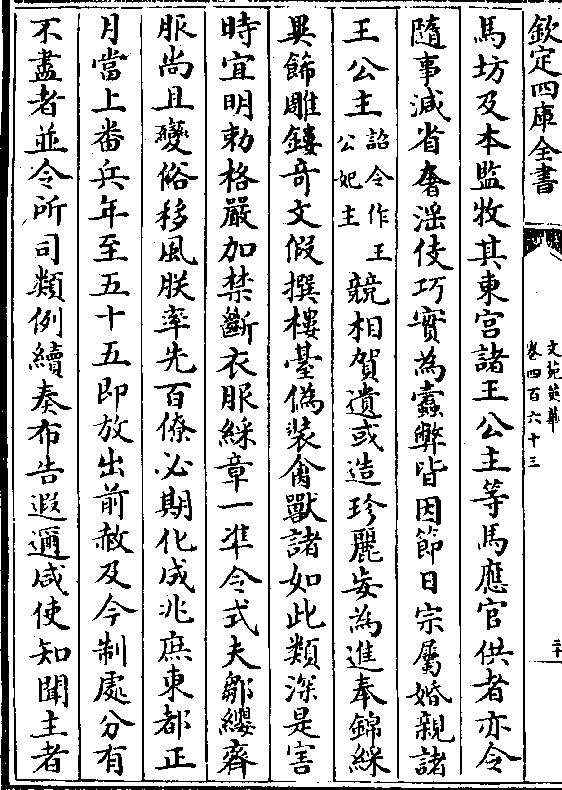 欽定四庫全書
文苑英華
卷四百六十三
二十
馬坊及本監牧其東宫諸王公主等馬應官供者亦令
隨事減省奢滛伎巧實為蠹弊皆因節日宗屬婚親諸
王公主詔令作王公妃主競相賀遺或造珍麗妄為進奉錦綵
異飾雕鏤竒文假撰樓臺偽装禽獸諸如此類深是害
時宜明勅格嚴加禁斷衣服綵章一准令式夫鄒纓齊
服尚且變俗移風朕率先百僚必期化成兆庶東都正
月當上番兵年至五十五即放出前赦及今制處分有
不盡者並令所司類例續奏布告遐邇咸使知聞主者